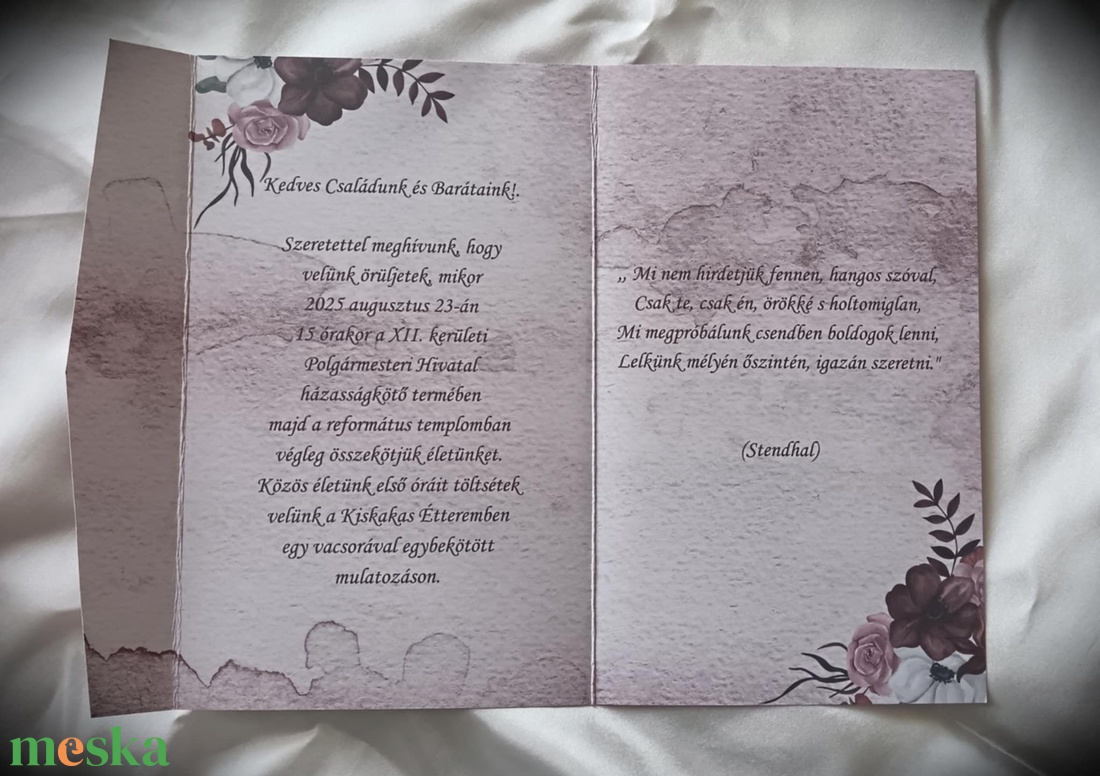 Kedves Családunk és Barátaink!.
Szeretettel meghívunk, hogy
velünk örüljetek, mikor
2025 augusztus 23-án
15 órakor a XII. kerületi
Polgármesteri Hivatal
házasságkötő termében
majd a református templomban
végleg összekötjük életünket.
Közös életünk első óráit töltsétek
velünk a Kiskakas Étteremben
egy vacsorával egybekötött
mulatozáson.
,, Mi nem hirdetjük fennen, hangos szóval,
Csak te, csak én, örökké s holtomiglan,
Mi megpróbálunk csendben boldogok lenni,
Lelkünk mélyén őszintén, igazán szeretni."
(Stendhal)
meska